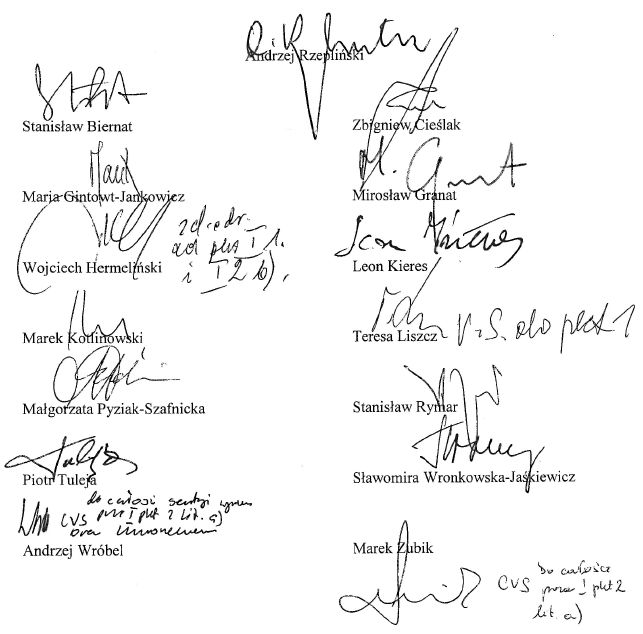 Andrzej Rzepliński
Stanisław Biernat
Zbigniew Cieślak
Maria Gintowt-Jankowicz
M. Granat
Mirosław Granat
zd. odr.
od pkt I 1.
i I 2 b).
Wojciech Hermeliński
Leon Kieres
Leon Kieres
Marek Kotlinowski
Teresa Liszcz
V.S. do pkt 1
Małgorzata Pyziak-Szafnicka
Stanisław Rymar
Tuleja
Piotr Tuleja
Sławomira Wronkowska-Jaśkiewicz
do całości sentencji
CVS prócz I pkt 2 lit. a)
oraz
Andrzej Wróbel
Marek Zubik
do całości
CVS prócz I pkt 2
lit. a)